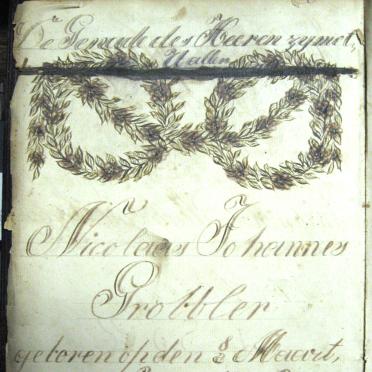 De Genade des Heeren zy met
U allen
Nicolaas Johannes
Grobbler
geboren op den 8 Maart,